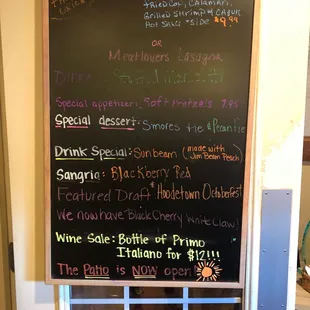 Fried Cod, Calamari,
Grilled Shrimp & Cajun
Hot Sauce + Side $9.99
OR
Meatlovers Lasagna
Special appetizer: Soft Pretzels 7.95
Special dessert: Smores Pie & Pecan Pie
Drink Special: Sunbeam (made with Jim Beam Peach)
Sangria: Blackberry Red
Featured Draft: Hoodetown Octoberfest
We now have Black Cherry White Claw!
Wine Sale: Bottle of Primo
Italiano for $12!!!
The Patio is NOW open!